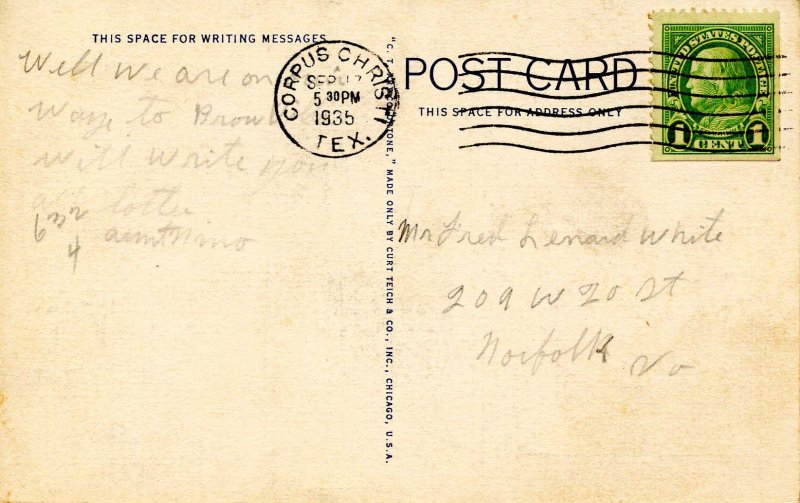 THIS SPACE FOR WRITING MESSAGES
Well we are on
Waye to
Will Write you
a lotter
aunt
632
4
CORPUS CHRISTI
SEP 17
5 30 PM
1935
TEX.
"C. T. ART-COLORTONE," MADE ONLY BY CURT TEICH & CO., INC., CHICAGO, U.S.A.
POST CARD
THIS SPACE FOR ADDRESS ONLY
UNITED STATES POSTAGE
1 CENT 1
Mr Fred Lenard White
209 W 20 St
Norfolk Va